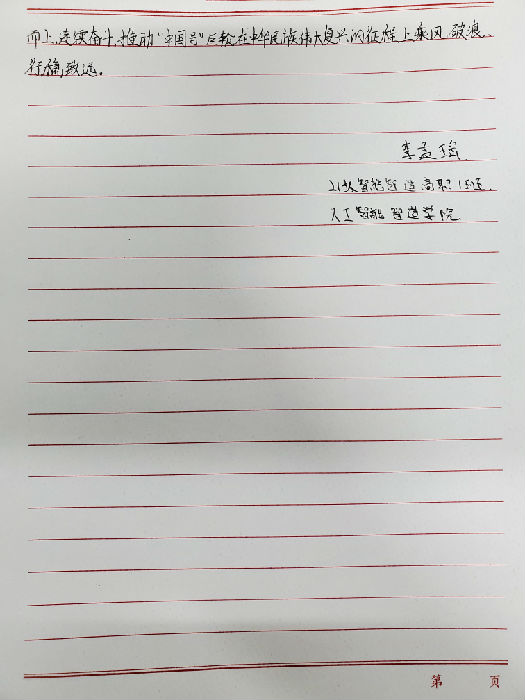 而上,连续奋斗,推动"中国号"巨轮在中华民族伟大复兴的征程上乘风破浪、
行稳致远。
李孟瑶
21级智能制造高职1班
人工智能制造学院
第 页